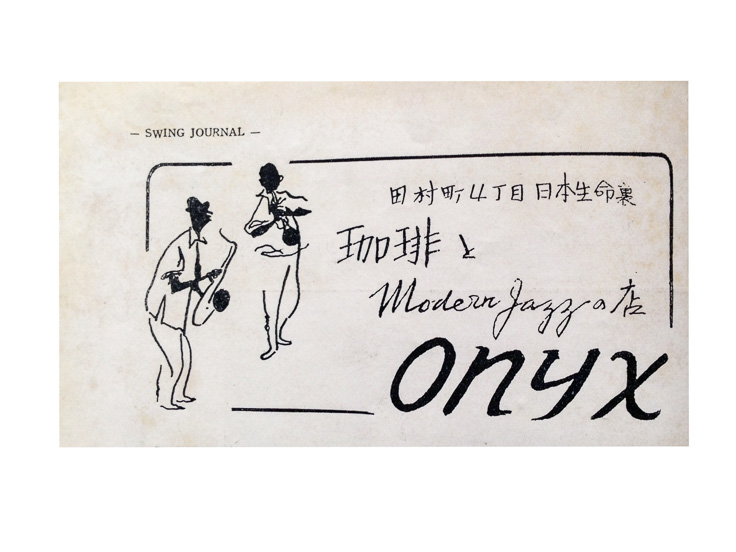 — SWING JOURNAL —
田村町4丁目 日本生命裏
珈琲と
Modern Jazzの店
onyx